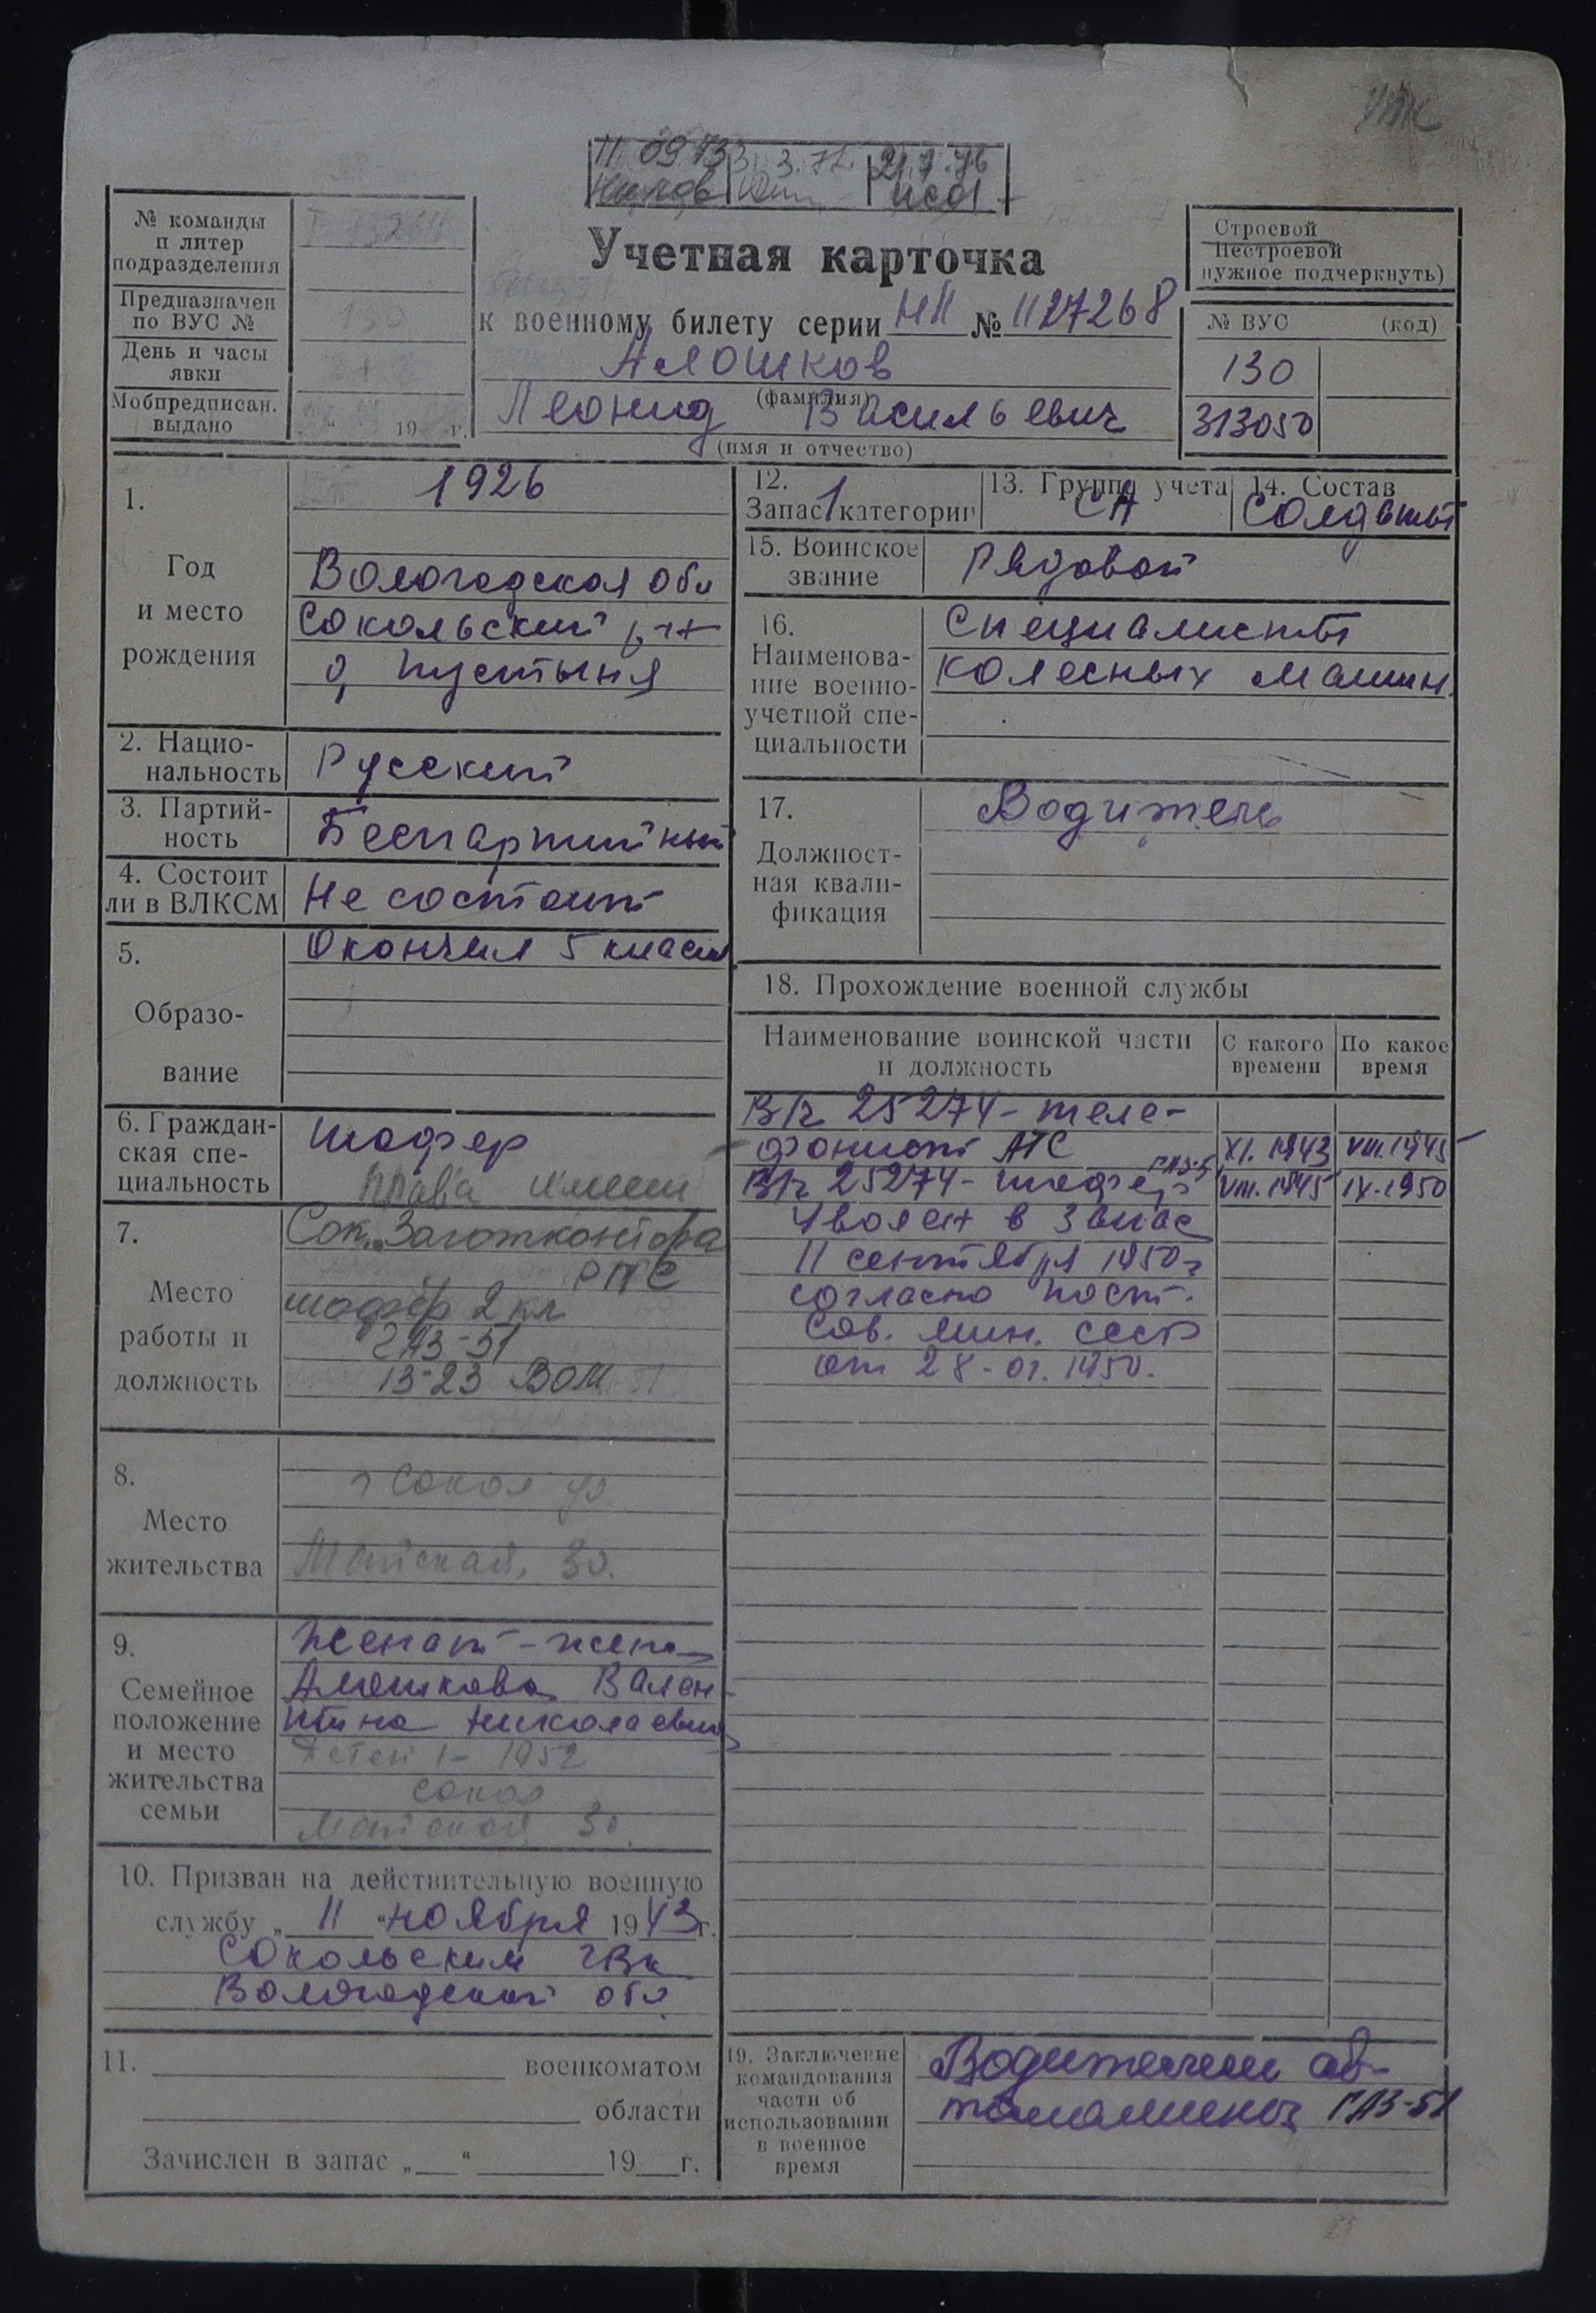 11 09 73 3.3.72 21.7.76
№ команды
п литер
подразделения
Предназначен
по ВУС №
130
День и часы
явки
Мобпредписан.
выдано
„ “ 19 г.
Учетная карточка
к военному билету серии НП № 1127268
Алошков
(фамилия)
Леонид Васильевич
(имя и отчество)
Строевой
Нестроевой
нужное подчеркнуть)
№ ВУС (код)
130
313050
1.
Год
и место
рождения
1926
Вологодская обл
Сокольский р-н
д. Пустыня
2. Нацио-
нальность
Русский
3. Партий-
ность
Беспартийный
4. Состоит
ли в ВЛКСМ
Не состоит
5.
Образо-
вание
Окончил 5 класс
6. Граждан-
ская спе-
циальность
шофер
права имеет
7.
Место
работы и
должность
Сок. Заготконтора
РПС
шофер 2 кл
ГАЗ-51
13-23 ВОМ
8.
Место
жительства
г Сокол ул.
Майская, 30.
9.
Семейное
положение
и место
жительства
семьи
Женат - жена
Алошкова Вален-
тина Николаевна
Детей 1 - 1952
Сокол
Майская 30.
10. Призван на действительную военную
службу „ 11 “ ноября 1943 г.
Сокольским ГВК
Вологодской обл.
11. военкоматом
области
Зачислен в запас „ “ 19 г.
12.
Запас 1 категории
13. Группа учета
СА
14. Состав
Солдаты
15. Воинское
звание
Рядовой
16.
Наименова-
ние военно-
учетной спе-
циальности
Специалисты
колесных машин.
17.
Должност-
ная квали-
фикация
Водитель
18. Прохождение военной службы
Наименование воинской части
и должность
С какого
времени
По какое
время
В/ч 25274 - теле-
фонист АТС XI.1943 VIII.1945
В/ч 25274 - шофер VIII.1945 IX.1950
Уволен в запас
11 сентября 1950 г
согласно пост.
Сов. Мин. СССР
от 28-01.1950.
19. Заключение
командования
части об
использовании
в военное
время
Водителем ав-
томашины ГАЗ-51